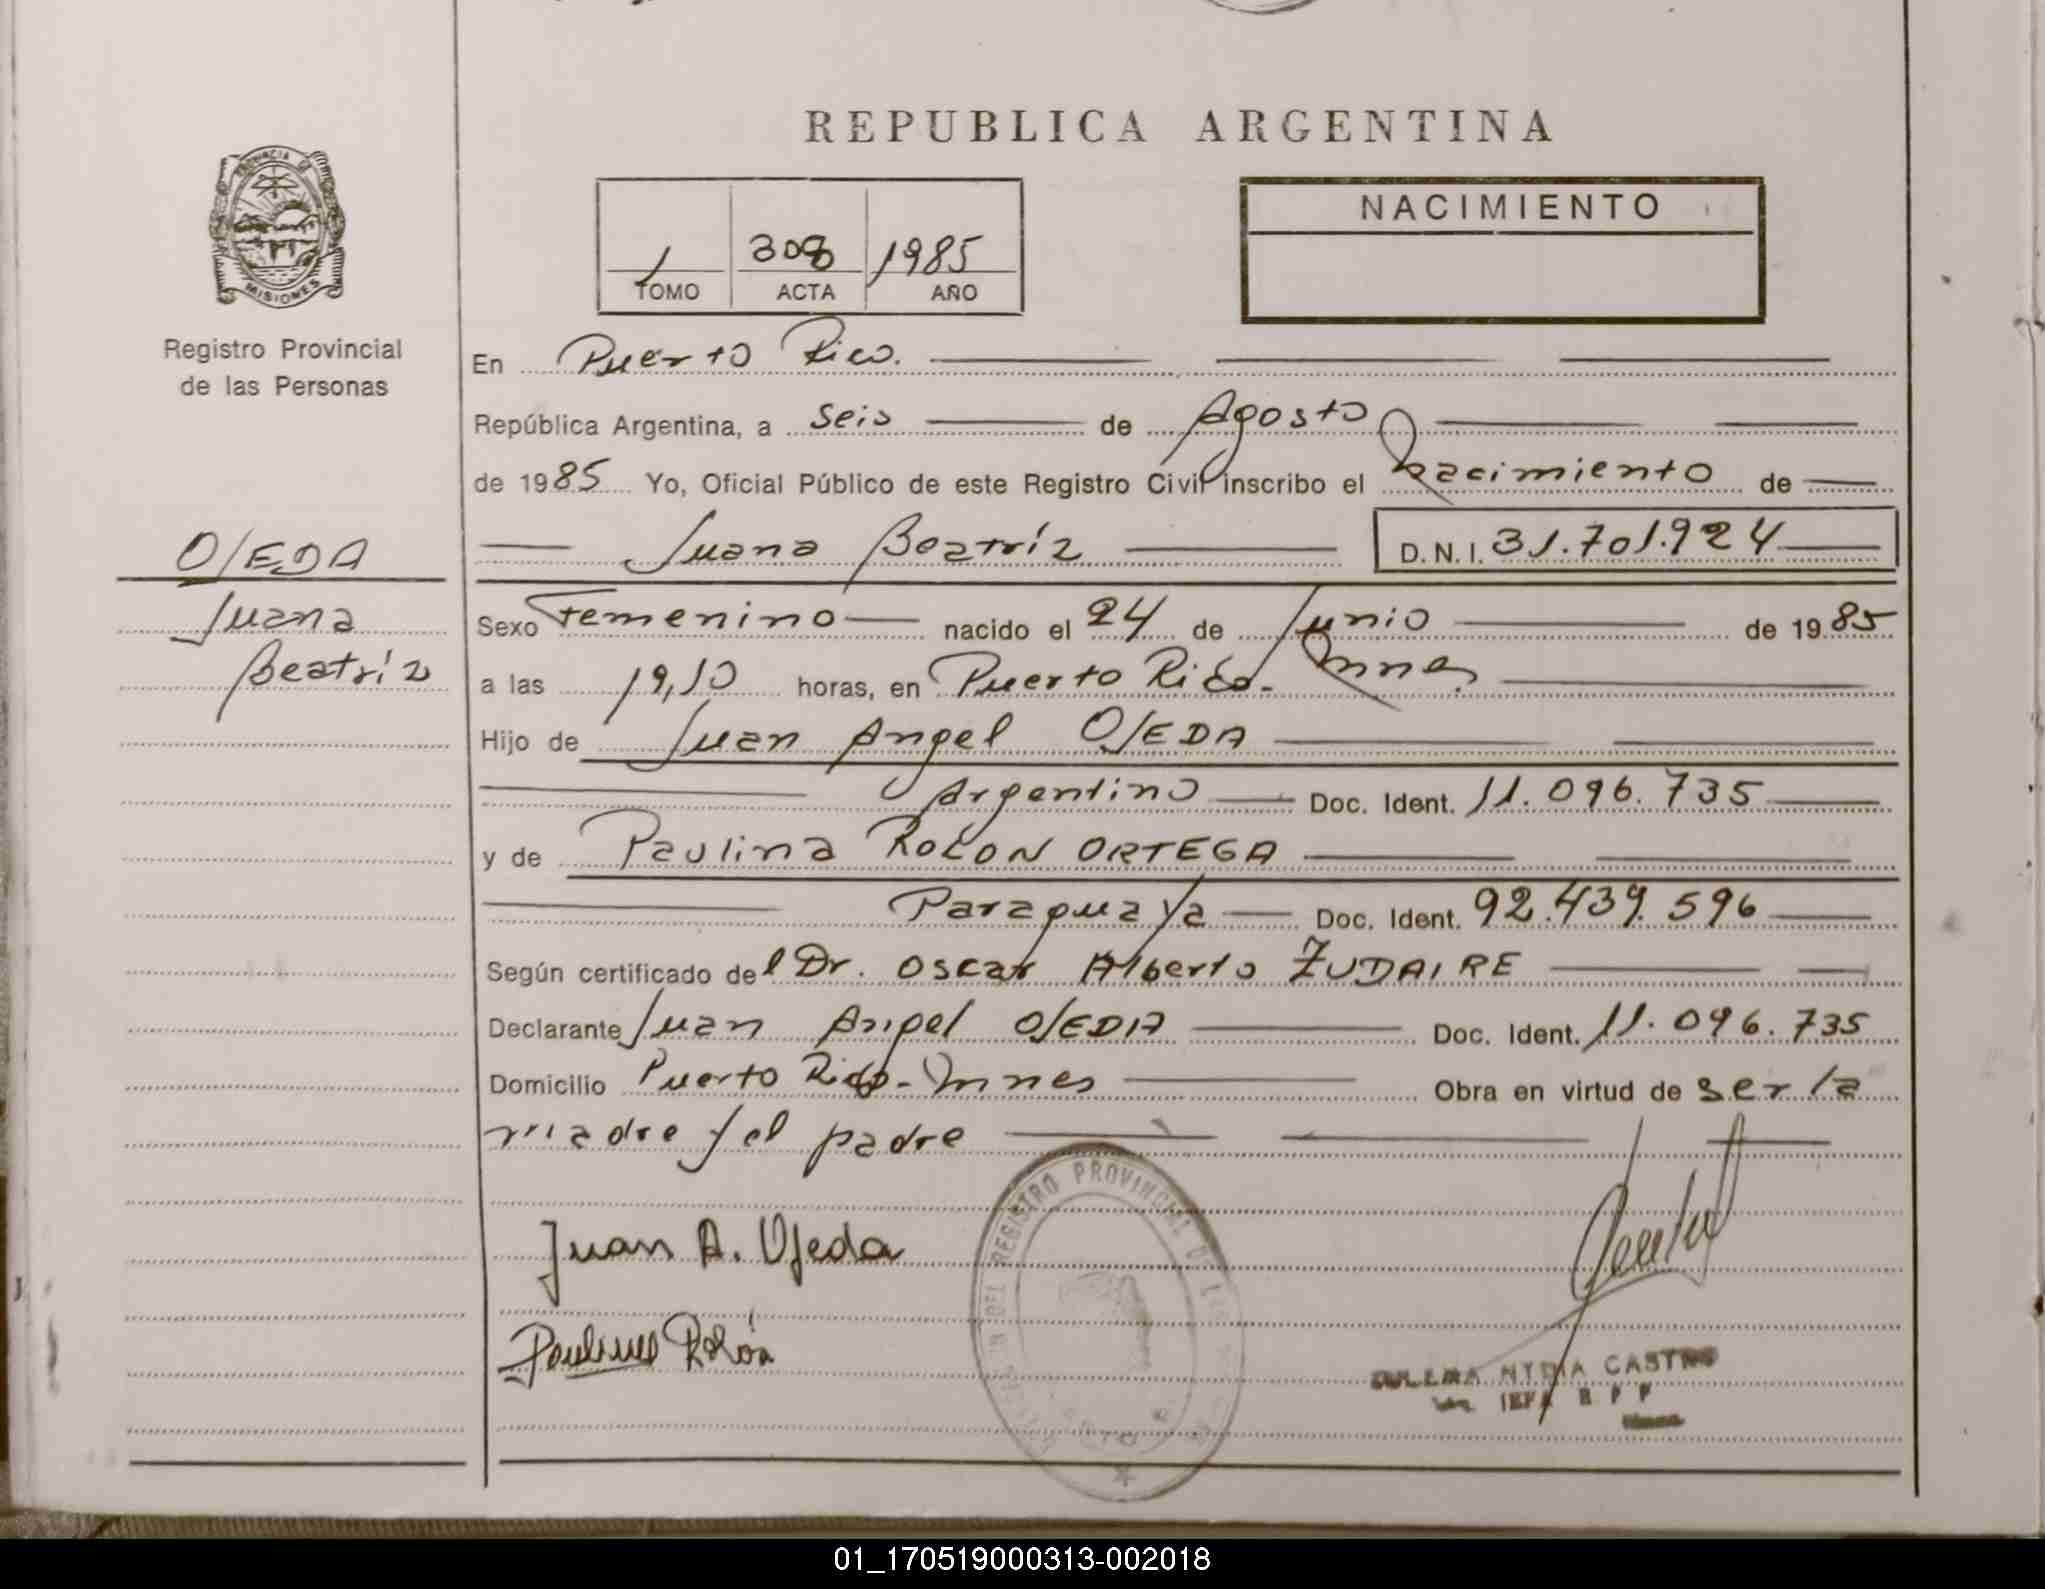 REPUBLICA ARGENTINA
PROVINCIA DE
MISIONES
Registro Provincial
de las Personas
1 308 1985
TOMO ACTA AÑO
NACIMIENTO
En Puerto Rico.
República Argentina, a seis de Agosto
de 1985 Yo, Oficial Público de este Registro Civil inscribo el Nacimiento de
Juana Beatríz D.N.I. 31.701.924
OJEDA
Juana
Beatríz
Sexo Femenino nacido el 24 de Junio de 1985
a las 19,10 horas, en Puerto Rico- Mnes.
Hijo de Juan Angel OJEDA
Argentino Doc. Ident. 11.096.735
y de Paulina ROLON ORTEGA
Paraguaya Doc. Ident. 92.439.596
Según certificado del Dr. Oscar Alberto ZUDAIRE
Declarante Juan Angel OJEDA Doc. Ident. 11.096.735
Domicilio Puerto Rico- Mnes Obra en virtud de ser la
madre y el padre
REGISTRO PROVINCIAL DE LAS
Juan A. Ojeda
Paulina Rolón
NYDIA CASTRO
01_170519000313-002018